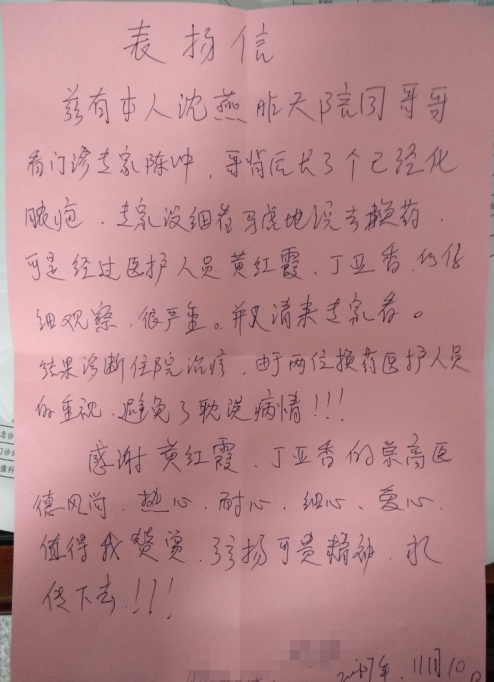 表扬信
兹有本人沈燕昨天陪同哥哥
看门诊专家陈冲,哥背后长了个已经化
脓疱.专家没细看马虎地说去换药.
可是经过医护人员黄红霞.丁亚香.的仔
细观察,很严重。并又请来专家看。
结果诊断住院治疗,由于两位换药医护人员
的重视.避免了耽误病情!!!
感谢黄红霞.丁亚香的崇高医
德风尚.热心.耐心.细心.爱心.
值得我赞赏.弘扬可贵精神.永
传下去!!!
11月10日